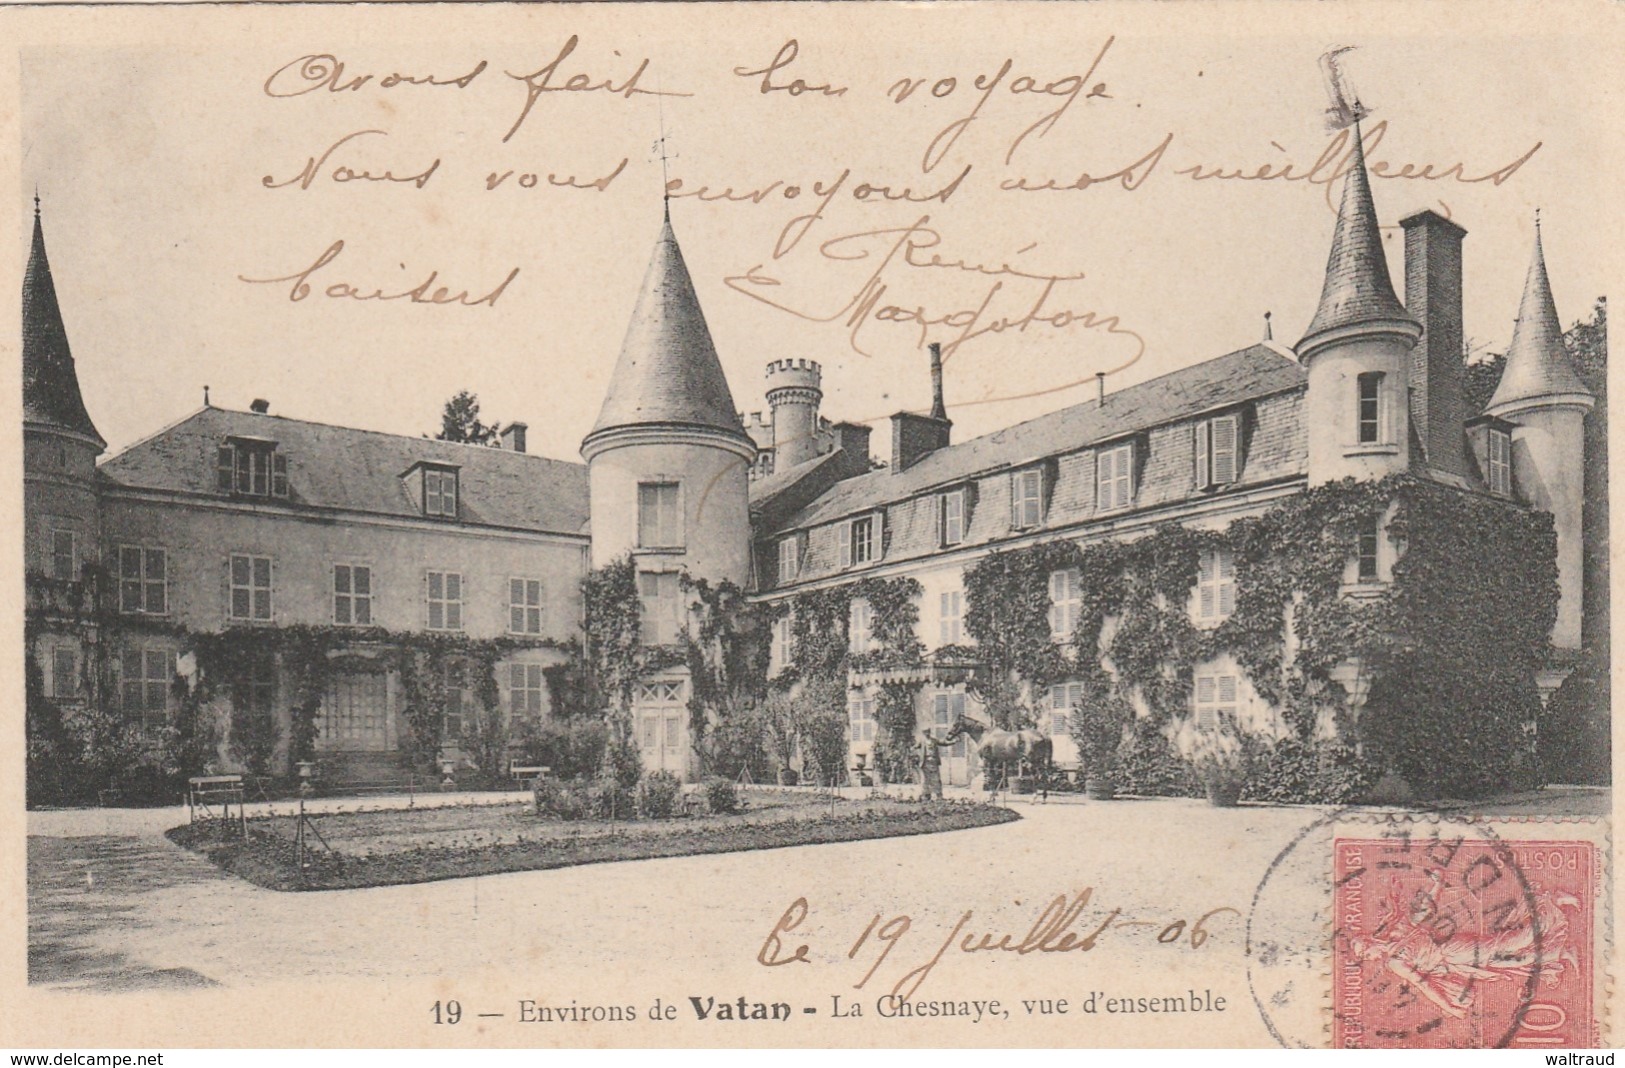 Avons fait bon voyage.
Nous vous envoyons nos meilleurs
baisers
René
Margoton
Le 19 juillet 06
19 — Environs de Vatan - La Chesnaye, vue d'ensemble
INDRE
REPUBLIQUE FRANÇAISE
POSTES
10
www.delcampe.net
waltraud